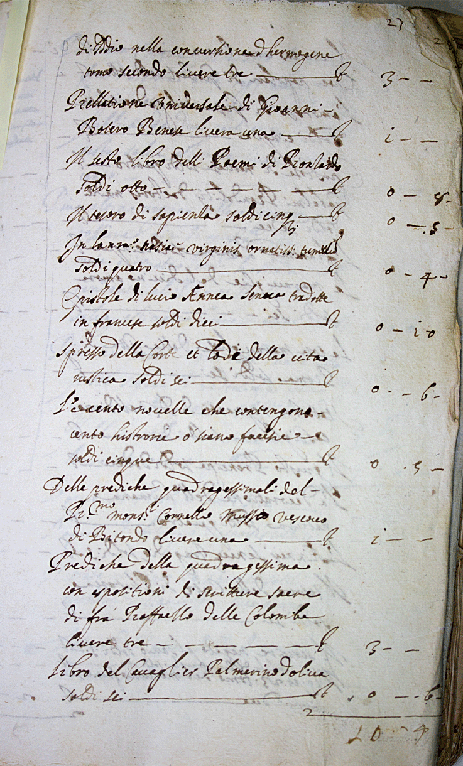 27
di Dio nella conversione d'hermogene
tomo secondo livere tre £ 3 - -
Rellatione Universale di Giovanni
Botero Benese livere una £ 1 - -
Il sesto libro delli Poemi di Ronsardo
soldi otto £ 0 - 8 -
Il tesoro di sapienta soldi cinq £ 0 - 5 -
In virginis
soldi quatro £ 0 - 4 -
Epistole di lucio Annea Seneca tradotte
in francese soldi dieci £ 0 - 10
spresso della Corte et lode della vita
rustica soldi sei £ 0 - 6 -
Le cento novelle che contengono
cento histrorie o siano facesie
soldi cinque £ 0 5 -
Delle prediche quadragessimali del
R.mo mons. Cornelio Musso vescovo
di Bitondo livere una £ 1 - -
Prediche della quadragessima
con spositioni di scritture sacre
di fra Raffaello delle Colombe
livere tre £ 3 - -
Libro del Cavaglier Palmerino d'oliva
soldi sei £ 0 - 6
£ 10 4